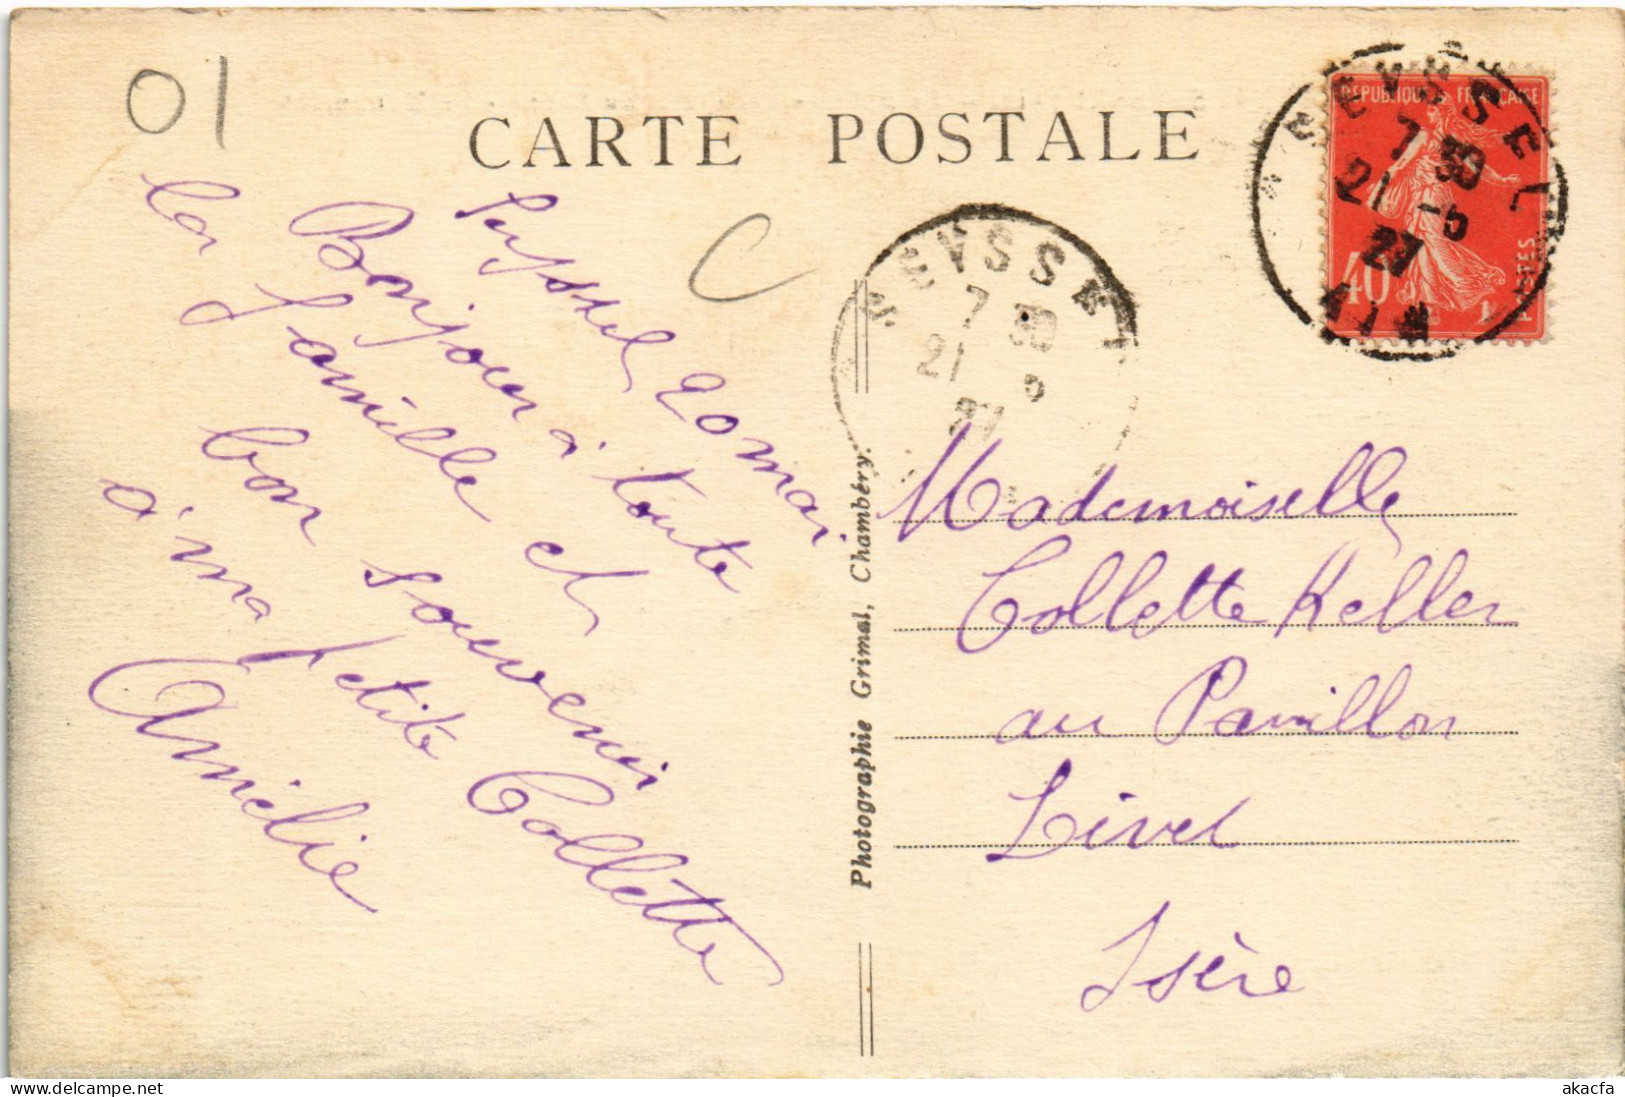 01
CARTE POSTALE
C
Seyssel 20 mai
Bonjour à toute
la famille et
bon souvenir
à ma petite Collette
Amélie
SEYSSEL
7 30
21 -5
27
AIN
REPUBLIQUE FRANÇAISE
40
POSTES
SEYSSEL
7 30
21 5
27
Photographie Grimal, Chambéry.
Mademoiselle
Collette Keller
au Pavillon
Livet
Isère
www.delcampe.net
akacfa